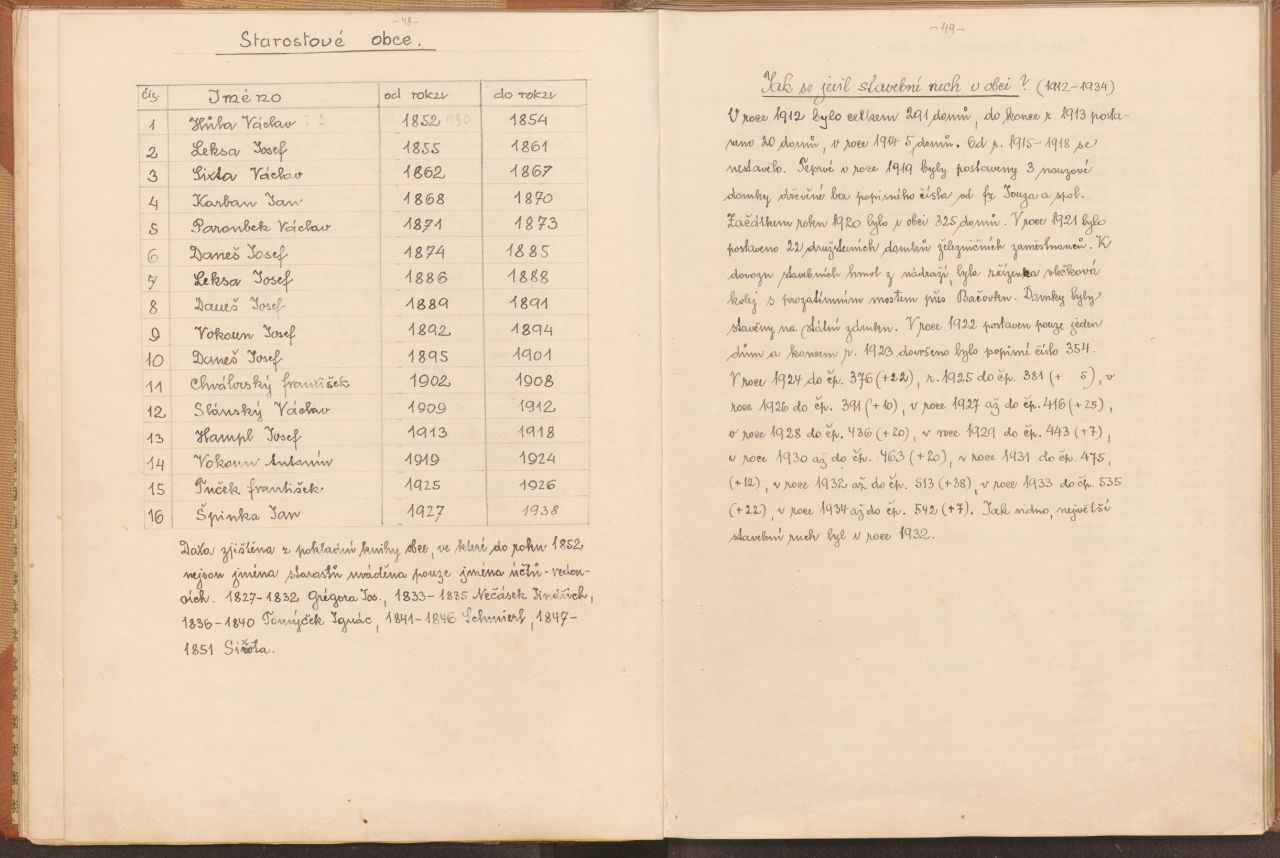 -48-
Starostové obce.
čís. Jméno od roku do roku
1 Hůla Václav 1852 1854
2 Leksa Josef 1855 1861
3 Sixta Václav 1862 1867
4 Karban Jan 1868 1870
5 Paroubek Václav 1871 1873
6 Daneš Josef 1874 1885
7 Leksa Josef 1886 1888
8 Daneš Josef 1889 1891
9 Vokoun Josef 1892 1894
10 Daneš Josef 1895 1901
11 Chválovský František 1902 1908
12 Slánský Václav 1909 1912
13 Hampl Josef 1913 1918
14 Vokoun Antonín 1919 1924
15 Tuček František 1925 1926
16 Špinka Jan 1927 1938
Data zjištěna z pokladní knihy obce, ve které do roku 1852
nejsou jména starostů uváděna pouze jména účtů-vedou-
cích. 1827-1832 Grégora Jos., 1833-1835 Nečásek Jindřich,
1836-1840 Tomýček Ignác, 1841-1846 Schmierl, 1847-
1851
-49-
Jak se jevil stavební ruch v obci? (1912-1934)
V roce 1912 bylo celkem 291 domů, do konce r. 1913 posta-
veno 20 domů, v roce 1914 5 domů. Od r. 1915-1918 se
nestavělo. Teprvé v roce 1919 byly postaveny 3 nouzové
domky dřevěné bez popisného čísla od fy Jouza a spol.
Začátkem roku 1920 bylo v obci 325 domů. V roce 1921 bylo
postaveno 22 družstevních domků železničních zaměstnanců. K
dovozu stavebních hmot z nádraží, byla zřízena vlečková
kolej s prozatímním mostem přes Bačovku. Domky byly
stavěny na státní záruku. V roce 1922 postaven pouze jeden
dům a koncem r. 1923 dovršeno bylo popisní číslo 354.
V roce 1924 do čp. 376 (+22), r. 1925 do čp. 381 (+ 5), v
roce 1926 do čp. 391 (+10), v roce 1927 až do čp. 416 (+25),
v roce 1928 do čp. 436 (+20), v roce 1929 do čp. 443 (+7),
v roce 1930 až do čp. 463 (+20), v roce 1931 do čp. 475,
(+12), v roce 1932 až do čp. 513 (+38), v roce 1933 do čp. 535
(+22), v roce 1934 až do čp. 542 (+7). Jak vidno, největší
stavební ruch byl v roce 1932.